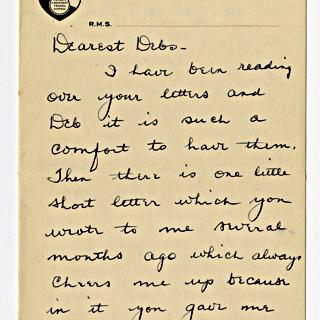 R.M.S.
Dearest Debs-
I have been reading
over your letters and
Deb it is such a
comfort to have them.
Then there is one little
short letter which you
wrote to me several
months ago which always
cheers me up because
in it you gave me